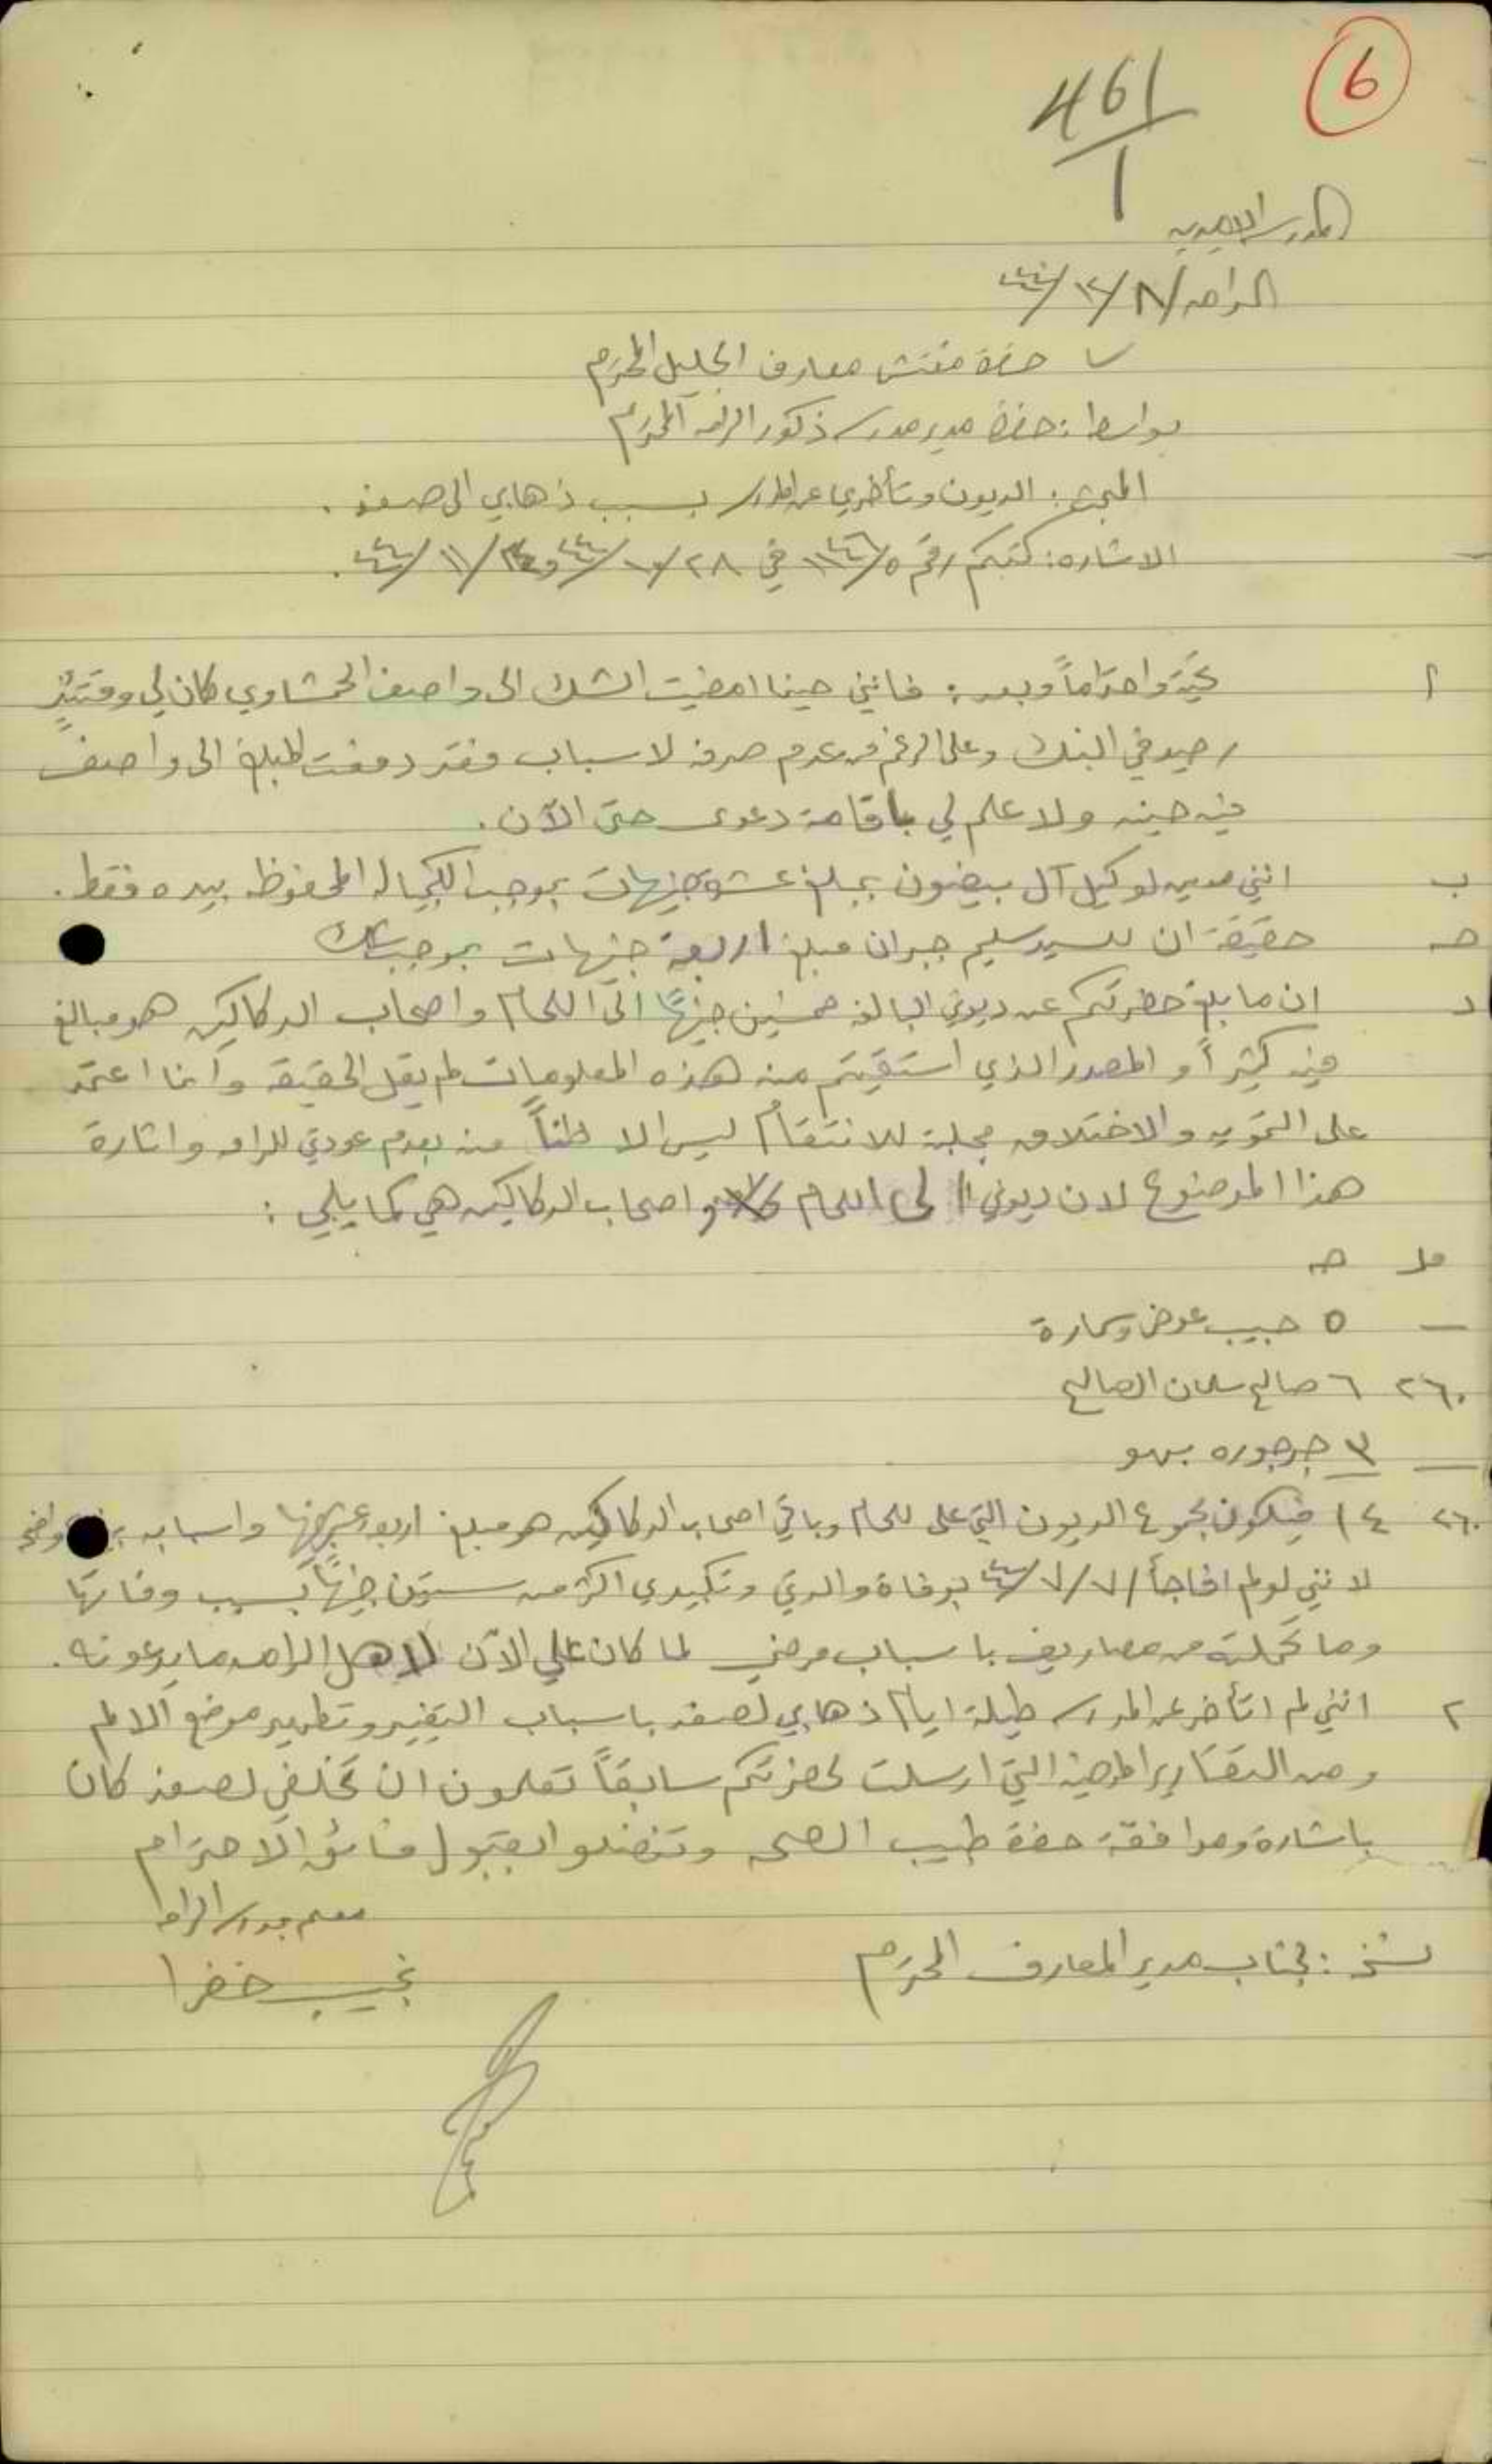 6
461
1
المدرسة الاميرية
الرامه ٨/١٢/٤٤
حضرة مفتش معارف الجليل المحترم
بواسطة: حضرة مدير مدرسة ذكور الرامه المحترم
المبحث: الديون وتأخري عن المدرسة بسبب ذهابي الى صفد.
الاشاره: كتبكم رقم في ٢٨/١٠/٤٤ و /١١/٤٤.
أ تحية واحتراماً وبعد: فانني حينما امضيت الشك الى واصف الخمشاوي كان لي وقتئذٍ
رصيد في البنك وعلى الرغم من عدم صرفه لاسباب فقد دفعت المبلغ الى واصف
في حينه ولا علم لي باقامة دعوى حتى الآن.
ب انني مدين لوكيل آل بيضون بمبلغ عشرة جنيهات بموجب الكمبيالة المحفوظة بيده فقط.
حـ حقيقة ان للسيد سليم جبران مبلغ اربعة جنيهات بموجب شك
د ان ما بلغ حضرتكم عن ديوني البالغة خمسين جنيهاً الى اللحام واصحاب الدكاكين هو مبالغ
فيه كثيراً و المصدر الذي استقيتم منه هذه المعلومات لم يقل الحقيقة وانما اعتمد
على التمويه والاختلاق مجلبة للانتقام ليس الا ظناً منه بعدم عودتي للرامه واثارة
هذا الموضوع لان ديوني الى اللحام واصحاب الدكاكين هي كما يلي:
مل جـ
— ٥ حبيب عوض وسمارة
٢٦٠ ٦ صالح سلمان الصالح
— ٣ جرجوره بهو
٢٦٠ ١٤ فيكون مجموع الديون التي علي للحام وباقي اصحاب الدكاكين هو مبلغ اربعة عشر جنيهاً واسبابه واضحة
لانني لو لم افاجأ ٧/٧/٤٤ بوفاة والدتي وتكبيدي اكثر من ستين جنيهاً بسبب وفاتها
وما تحملته من مصاريف باسباب مرضي لما كان علي الآن لاهل الرامه ما يدعونه.
٢ انني لم اتأخر عن المدرسة طيلة ايام ذهابي لصفد باسباب التغيير وتطهير موضع الالم
ومن التقارير المرضية التي ارسلت لحضرتكم سابقاً تعلمون ان تخلفي لصفد كان
باشارة وموافقة حضرة طبيب الصحه وتفضلوا بقبول فائق الاحترام
معلم مدرسة الرامه
نسخة: لجناب مدير المعارف المحترم
نجيب خضرا